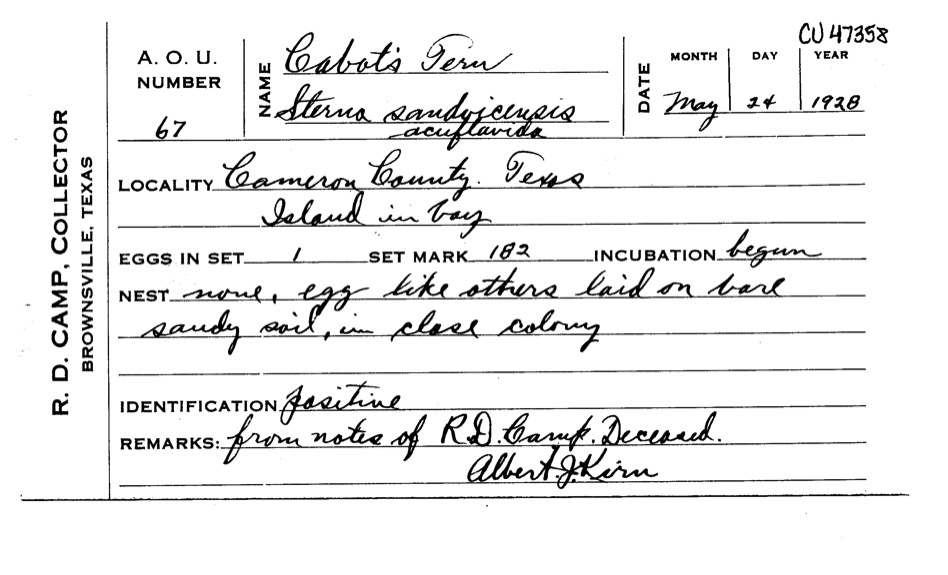 CU 47358
R. D. CAMP, COLLECTOR
BROWNSVILLE, TEXAS
A. O. U. NUMBER 67
NAME Cabot's Tern
Sterna sandvicensis
acuflavida
DATE MONTH May DAY 24 YEAR 1928
LOCALITY Cameron County. Texas
Island in bay
EGGS IN SET 1 SET MARK 182 INCUBATION begun
NEST none, egg like others laid on bare
sandy soil, in close colony
IDENTIFICATION positive
REMARKS: from notes of R.D. Camp. Deceased.
Albert J. Kirn